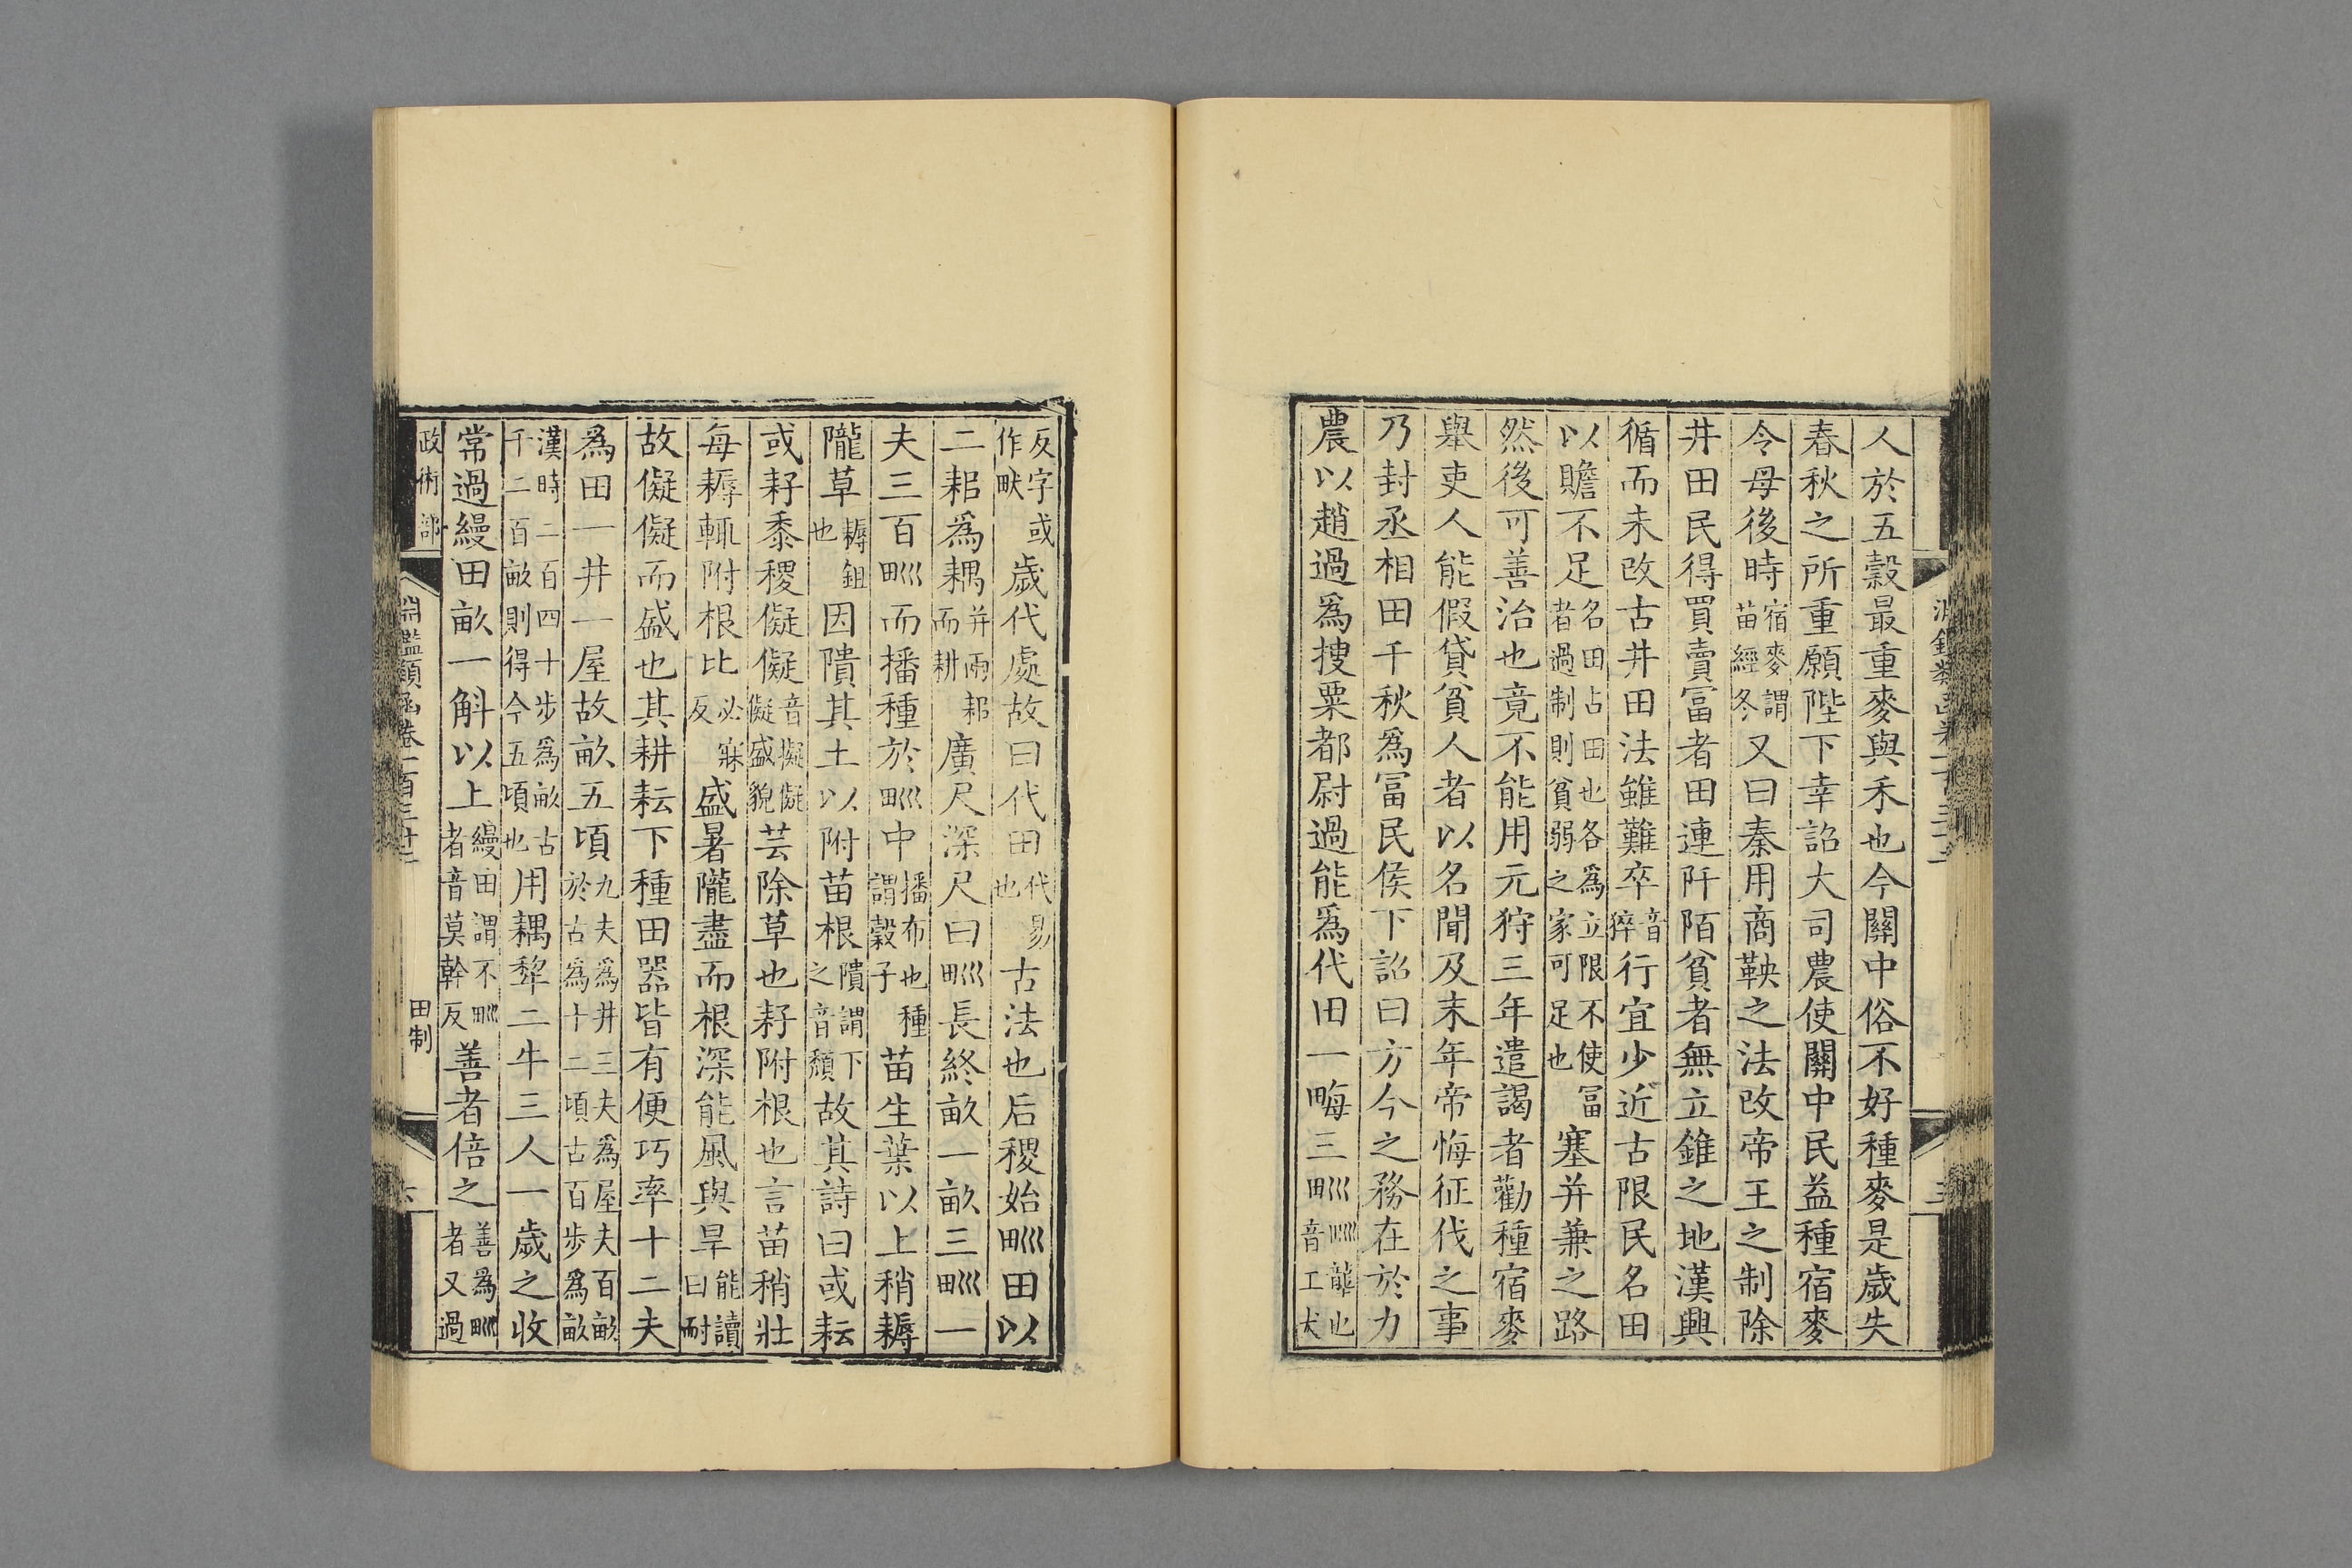 人於五穀最重麥與禾也今關中俗不好種麥是歲失
春秋之所重願陛下幸詔大司農使關中民益種宿麥
令毋後時宿麥謂苗經冬又曰秦用商鞅之法改帝王之制除
井田民得買賣冨者田連阡陌貧者無立錐之地漢興
循而未改古井田法雖難卒音猝行宜少近古限民名田
以贍不足名田占田也各爲立限不使冨者過制則貧弱之家可足也塞并兼之路
然後可善治也竟不能用元狩三年遣謁者勸種宿麥
舉吏人能假貸貧人者以名聞及末年帝悔征伐之事
乃封丞相田千秋爲冨民侯下詔曰方今之務在於力
農以趙過爲搜粟都尉過能爲代田一畮三甽甽壟也音工犬
反字或作畎歲代處故曰代田代易也古法也后稷始甽田以
二耜爲耦并兩耜而耕廣尺深尺曰甽長終畝一畝三甽一
夫三百甽而播種於甽中播布也種謂穀子苗生葉以上稍耨
隴草耨鉏也因隤其土以附苗根隤謂下之音頽故其詩曰或耘
或耔黍稷儗儗音擬儗儗盛貌芸除草也耔附根也言苗稍壯
每耨輒附根比必寐反盛暑隴盡而根深能風與旱能讀曰耐
故儗儗而盛也其耕耘下種田器皆有便巧率十二夫
爲田一井一屋故畝五頃九夫爲井三夫爲屋夫百畝於古爲十二頃古百步爲畝
漢時二百四十步爲畝古千二百畝則得今五頃也用耦犂二牛三人一歲之收
常過縵田畝一斛以上縵田謂不甽者音莫幹反善者倍之善爲甽者又過
政術部 淵鑑類函卷一百三 田制